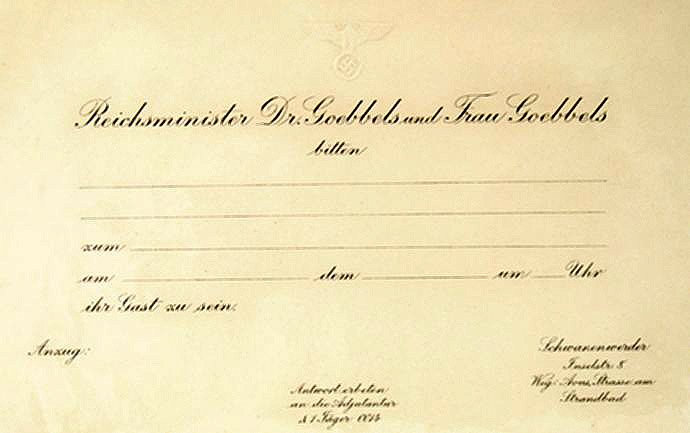 Reichsminister Dr. Goebbels und Frau Goebbels
bitten
zum
am dem um Uhr
ihr Gast zu sein.
Anzug:
Schwanenwerder
Inselstr. 8.
Weg: Avus, Strasse am
Strandbad
Antwort erbeten
an die Adjutantur
A 1 Jäger 0014